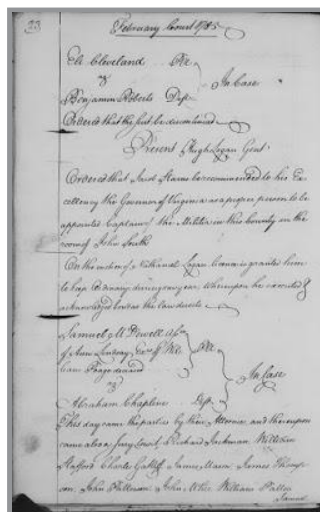 23
February Court 1785
Eli Cleveland Plt
vs
In Case
Benjamin Roberts Deft
Ordered that the suit be discontinued
Present Hugh Logan Gent
Ordered that Jarot be recommended to his Ex
cellency the Governor of Virginia as a proper person to be
appointed Captain of the Militia in this County in the
room of John South
On the motion of Nathaniel Logan licence is granted him
to keep Ordinary during one year. Whereupon he executed &
acknowledged bond as the law directs
Samuel McDowell
of Ann Lindsay, Exrs of Wm Plt
deceased
vs
In Case
Abraham Chapline Deft
This day came the parties by their Attornies and thereupon
came also a Jury (to wit) Richard Jackman William
Stafford Charles Gatliff James Mason James Thomp
son John Patterson John William
James